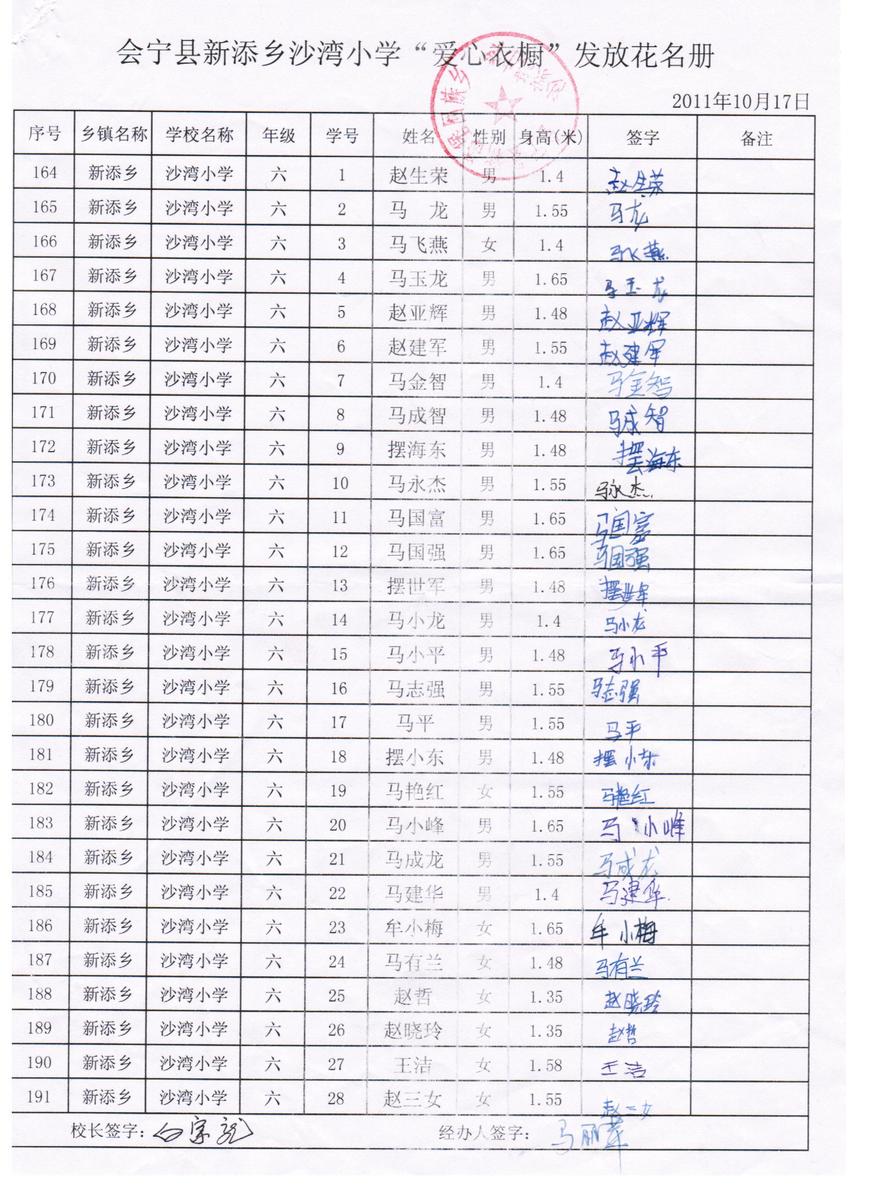 会宁县新添乡沙湾小学“爱心衣橱”发放花名册
2011年10月17日
序号 乡镇名称 学校名称 年级 学号 姓名 性别 身高(米) 签字 备注
164 新添乡 沙湾小学 六 1 赵生荣 男 1.4 赵生荣
165 新添乡 沙湾小学 六 2 马 龙 男 1.55 马龙
166 新添乡 沙湾小学 六 3 马飞燕 女 1.4 马飞燕
167 新添乡 沙湾小学 六 4 马玉龙 男 1.65 马玉龙
168 新添乡 沙湾小学 六 5 赵亚辉 男 1.48 赵亚辉
169 新添乡 沙湾小学 六 6 赵建军 男 1.55 赵建军
170 新添乡 沙湾小学 六 7 马金智 男 1.4 马金智
171 新添乡 沙湾小学 六 8 马成智 男 1.48 马成智
172 新添乡 沙湾小学 六 9 摆海东 男 1.48 摆海东
173 新添乡 沙湾小学 六 10 马永杰 男 1.55 马永杰
174 新添乡 沙湾小学 六 11 马国富 男 1.65 马国富
175 新添乡 沙湾小学 六 12 马国强 男 1.65 马国强
176 新添乡 沙湾小学 六 13 摆世军 男 1.48 摆世军
177 新添乡 沙湾小学 六 14 马小龙 男 1.4 马小龙
178 新添乡 沙湾小学 六 15 马小平 男 1.48 马小平
179 新添乡 沙湾小学 六 16 马志强 男 1.55 马志强
180 新添乡 沙湾小学 六 17 马平 男 1.55 马平
181 新添乡 沙湾小学 六 18 摆小东 男 1.48 摆小东
182 新添乡 沙湾小学 六 19 马艳红 女 1.55 马艳红
183 新添乡 沙湾小学 六 20 马小峰 男 1.65 马小峰
184 新添乡 沙湾小学 六 21 马成龙 男 1.55 马成龙
185 新添乡 沙湾小学 六 22 马建华 男 1.4 马建华
186 新添乡 沙湾小学 六 23 牟小梅 女 1.65 牟小梅
187 新添乡 沙湾小学 六 24 马有兰 女 1.48 马有兰
188 新添乡 沙湾小学 六 25 赵哲 女 1.35 赵晓玲
189 新添乡 沙湾小学 六 26 赵晓玲 女 1.35 赵哲
190 新添乡 沙湾小学 六 27 王洁 女 1.58 王洁
191 新添乡 沙湾小学 六 28 赵三女 女 1.55 赵三女
校长签字： 经办人签字：马丽萍